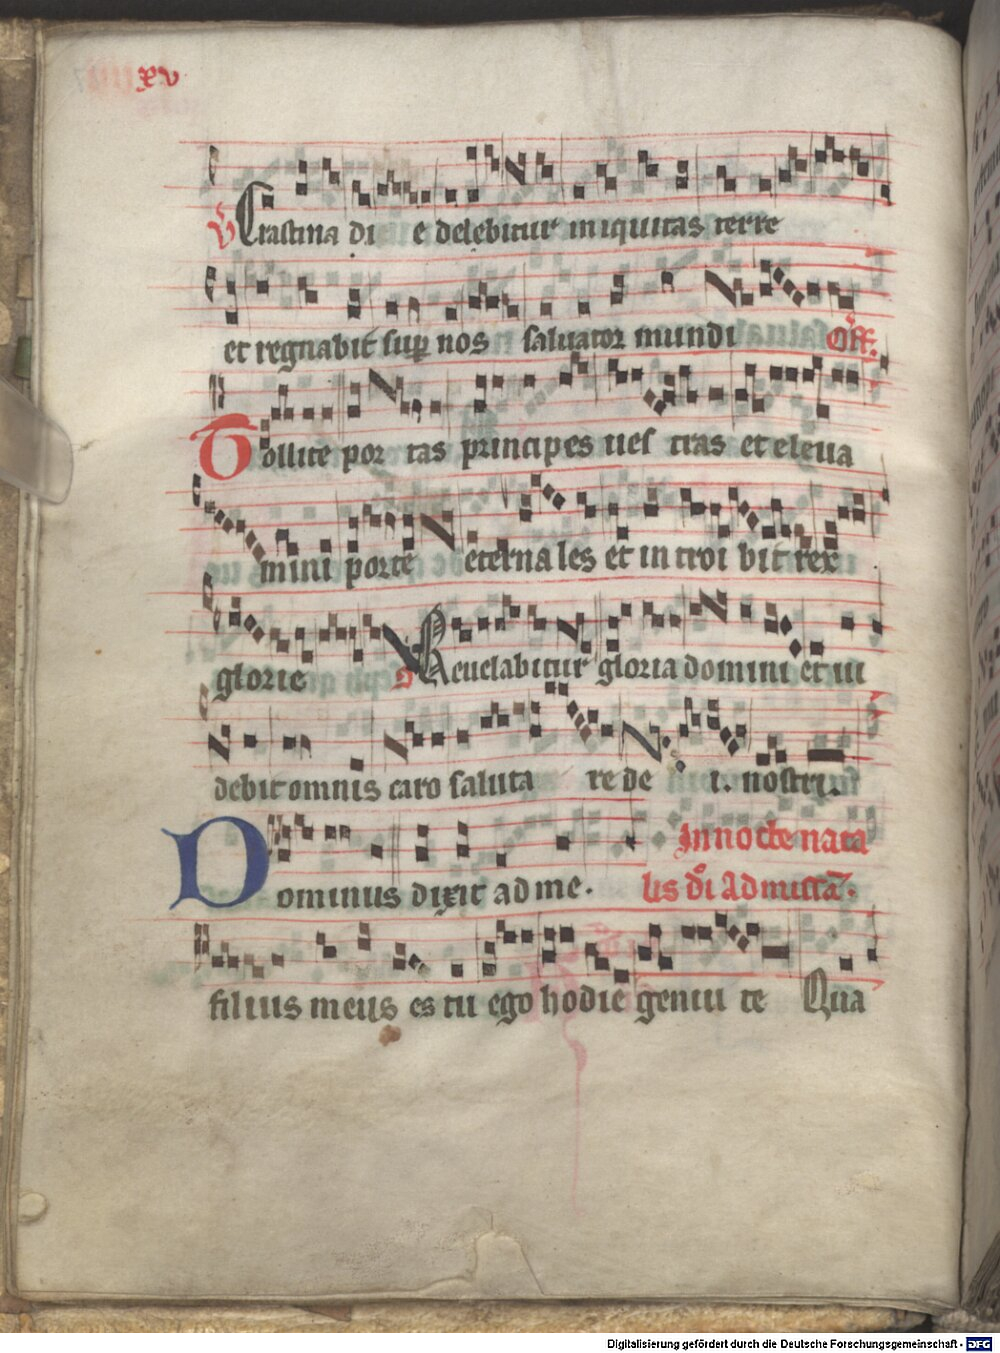 xv
V Crastina di e delebitur iniquitas terre
et regnabit sup nos saluator mundi Off.
Tollite por tas principes ues tras et eleua
mini porte eterna les et in troi bit rex
glorie Reuelabitur gloria domini et ui
debit omnis caro saluta re de i. nostri.
In nocte nata
Dominus dixit ad me. lis dni ad missā.
filius meus es tu ego hodie genui te Qua
Digitalisierung gefördert durch die Deutsche Forschungsgemeinschaft - DFG